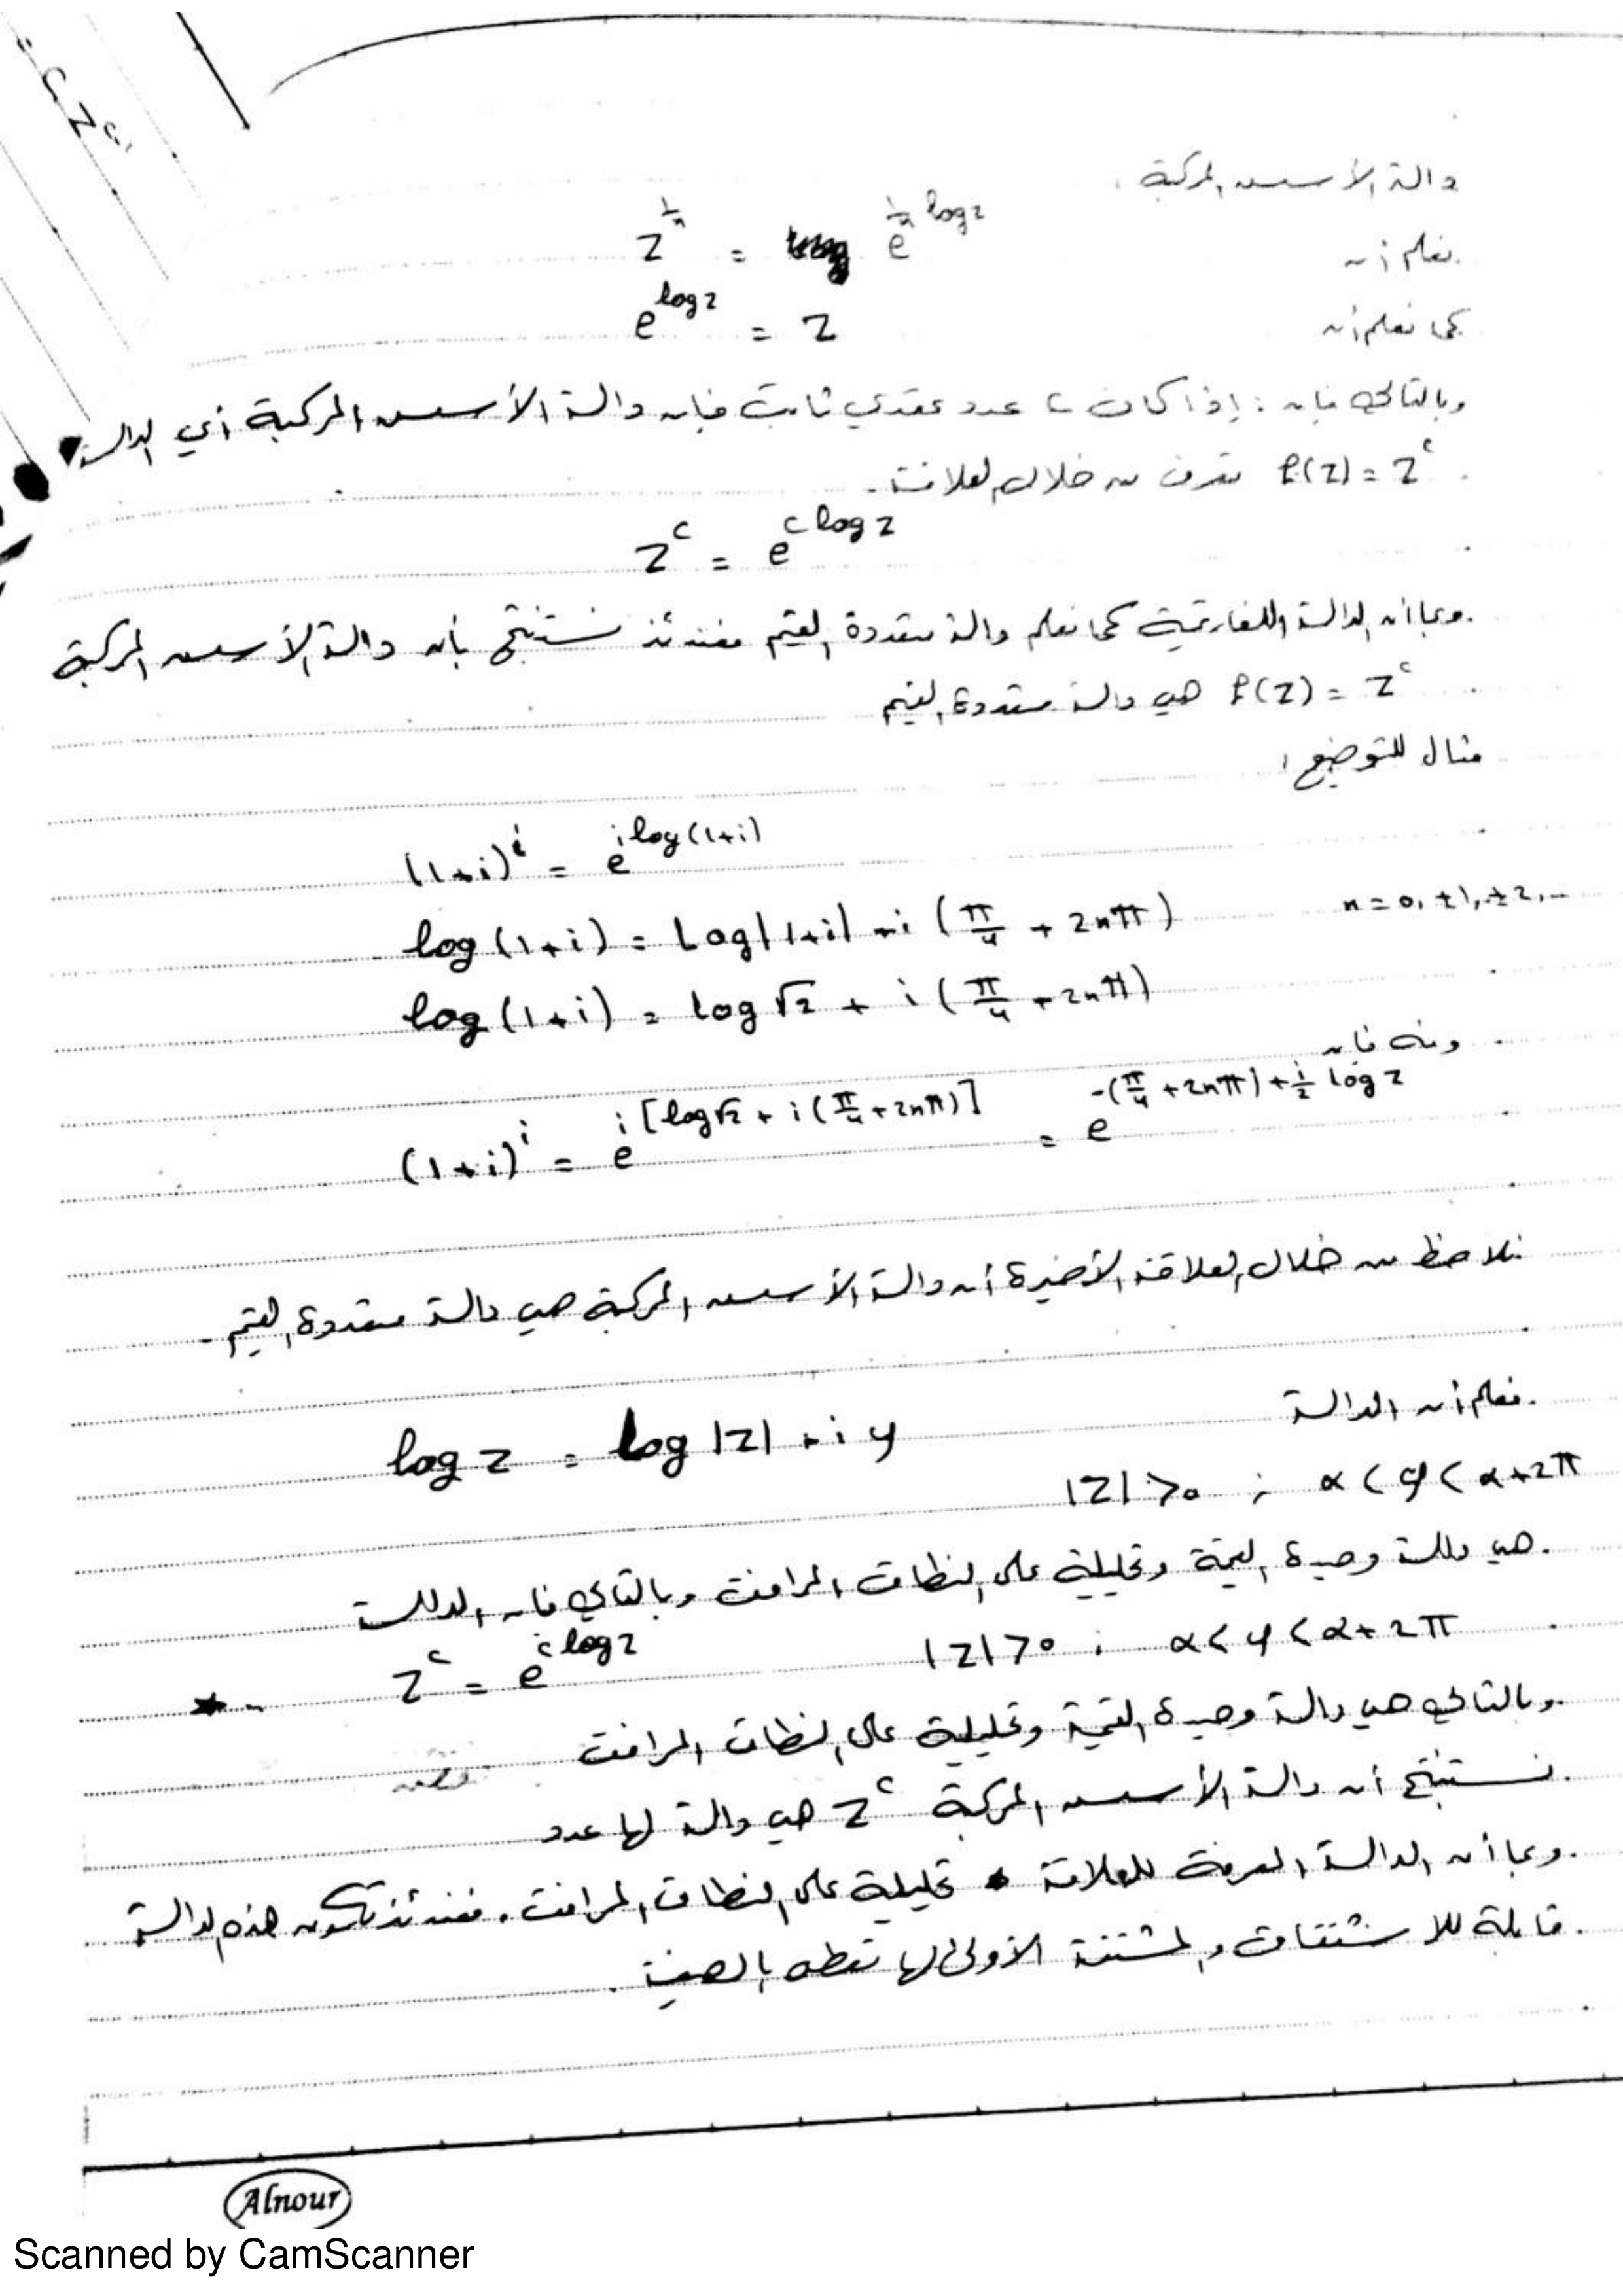 دالة الأسس المركبة :
نعلم أن z^{1/n} = e^{1/n log z}
كما نعلم أن e^{log z} = z
وبالتالي فإن : إذا كان c عدد عقدي ثابت فإن دالة الأسس المركبة أي الدالة
f(z) = z^c تعرف من خلال العلاقة .
z^c = e^{c log z}
وبما أن الدالة اللغارتمية كما نعلم دالة متعددة القيم فعندئذ نستنتج بأن دالة الأسس المركبة
f(z) = z^c هي دالة متعددة القيم
مثال للتوضيح :
(1+i)^i = e^{i log(1+i)}
log(1+i) = Log|1+i| + i(π/4 + 2nπ) n = 0, ±1, ±2, ...
log(1+i) = Log √2 + i(π/4 + 2nπ)
ومنه فإن
(1+i)^i = e^{i[log√2 + i(π/4 + 2nπ)]} = e^{-(π/4 + 2nπ) + i/2 log 2}
نلاحظ من خلال العلاقة الأخيرة أن دالة الأسس المركبة هي دالة متعددة القيم .
نعلم أن الدالة
log z = log |z| + i φ
|z| > 0 ; α < φ < α + 2π
هي دالة وحيدة القيمة وتحليلية على النطاق المرافق وبالتالي فإن الدالة
z^c = e^{c log z} |z| > 0 ; α < φ < α + 2π
وبالتالي هي دالة وحيدة القيمة وتحليلية على النطاق المرافق
نستنتج أن دالة الأسس المركبة z^c هي دالة لها عدد
وبما أن الدالة المعرفة للعلاقة * تحليلية على النطاق المرافق . فعندئذ تكون هذه الدالة
قابلة للاشتقاق والمشتقة الأولى لها تعطى بالصيغة .
Alnour
Scanned by CamScanner